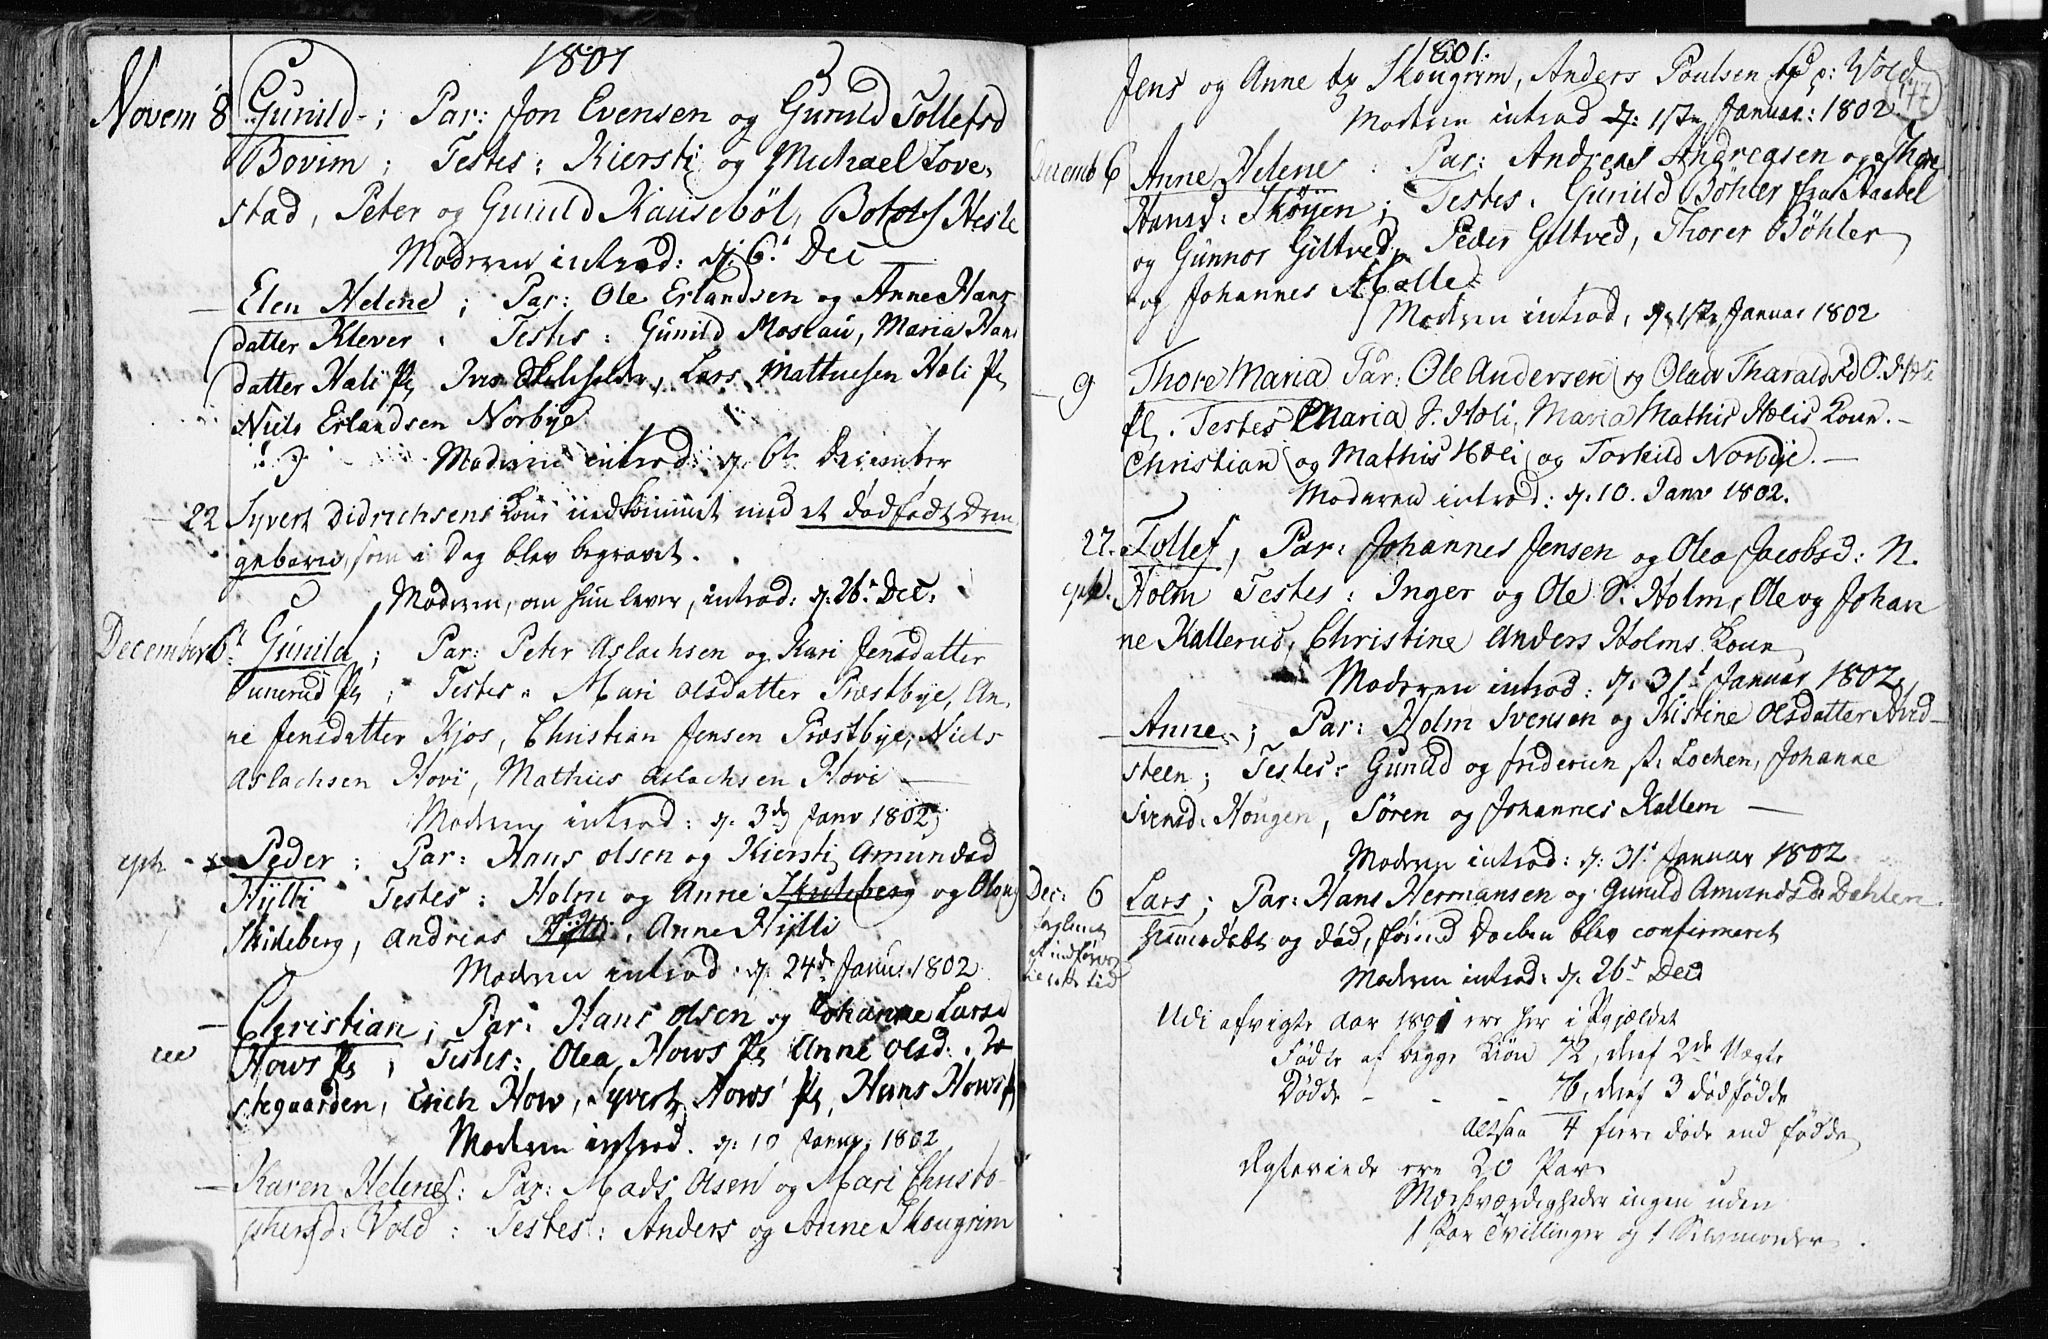 1801
Novem 8 Gunild ; Par: Jon Evensen og Gunild Tollefsd
Bovim ; Testes : Kiersti og Michael Love,
stad, Peter og Gunild Kauseböl, Botolf Hesle
Moderen introd: d: 6t Dec
Elen Helene ; Par: Ole Erlandsen og Anne Hans
datter Klever : Testes : Gunild Moslau, Maria Hans
datter Hæli Pl, Lars Mathiesen Hæli Pl
Niels Erlandsen Norbye
Moderen introd: d. 6t December
22 Syvert Didrichsens Kone indkommet med et dødfødt Dren
gebarn, som i Dag blev begravet.
Moderen, om hun lever, introd: d. 26t Dec:
December 6t Gunild ; Par: Peter Aslachsen og Kari Jensdatter
Pl ; Testes : Mari Olsdatter Præstbye, An,
ne Jensdatter Kjos, Christian Jensen Præstbye, Niels
Aslachsen Hovi, Mathies Aslachsen Hovi
Moderen introd: d. 3de Janv 1802
eph - Peder ; Par: Hans Olsen og Kiersti Amundsd
Hylli Testes : Holm og Anne Skideberg og Olaug
Skideberg, Andreas Hylli, Anne Hylli
Moderen introd: d. 24de Janv. 1802
Christian ; Par: Hans Olsen og Johanne Larsd
Hows Pl ; Testes : Olea Hows Pl Anne Olsd.
stegaarden, Erich How, Syvert Hows Pl, Hans Hows Pl
Moderen introd. d. 10 Janv. 1802
Karen Helene : Par: Mads Olsen og Mari Christo-
phersd: Vold : Testes : Anders og Anne Skougrim
1801:
Jens og Anne Skougrim, Anders Poulsen Vold
147
Moderen introd d. 1ste Januar: 1802
Decemb 6 Anne Helene : Par: Andreas Andreasen og Thore
Hansd: Skøyen ; Testes : Gunild Böhler
og Gunnor Giltved, Peder Giltved, Thorer Böhler
og Johannes Molle
Moderen introd, d. 1ste Januar 1802
9 Thore Maria Par: Ole Andersen og Olaw Tharaldsd S. Hæli
Pl. Testes Maria S. Hæli, Maria Mathis Hælis Kone.
Christian og Mathis Hæli og Torkild Norbye.
Moderen introd: d. 10. Janv 1802.
27. Tollef, Par: Johannes Jensen og Olea Jacobsd: N.
Holm Testes : Inger og Ole S. Holm, Ole og Johan
ne Kallerud, Christine Anders Holms Kone
Moderen introd: d. 31t Januar 1802
Anne ; Par: Holm Svensen og Kistine Olsdatter Hvid
steen ; Testes : Gunild og Friderich Lochen, Johanne
Svensd. Hougen, Sören og Johannes Kallem
Moderen introd: d. 31t Januar 1802
Dec: 6 Lars ; Par: Hans Hermansen og Gunild Amundsd Dahlen
hiemedøbt og død, førend Daaben blev confirmeret
Moderen introd: d. 26t Dec
Udi afvigte Aar 1801 ere her i Pgjældet
Fødte af begge Kiøn 72, deraf 2de Uægte
Dødde - - - 76, deraf 3 dødfødde
Altsaa 4 flere døde end fødde
Egteviede ere 20 Par
Mærkværdigheder ingen uden
1 Par Tvillinger og 1 Selvmorder.